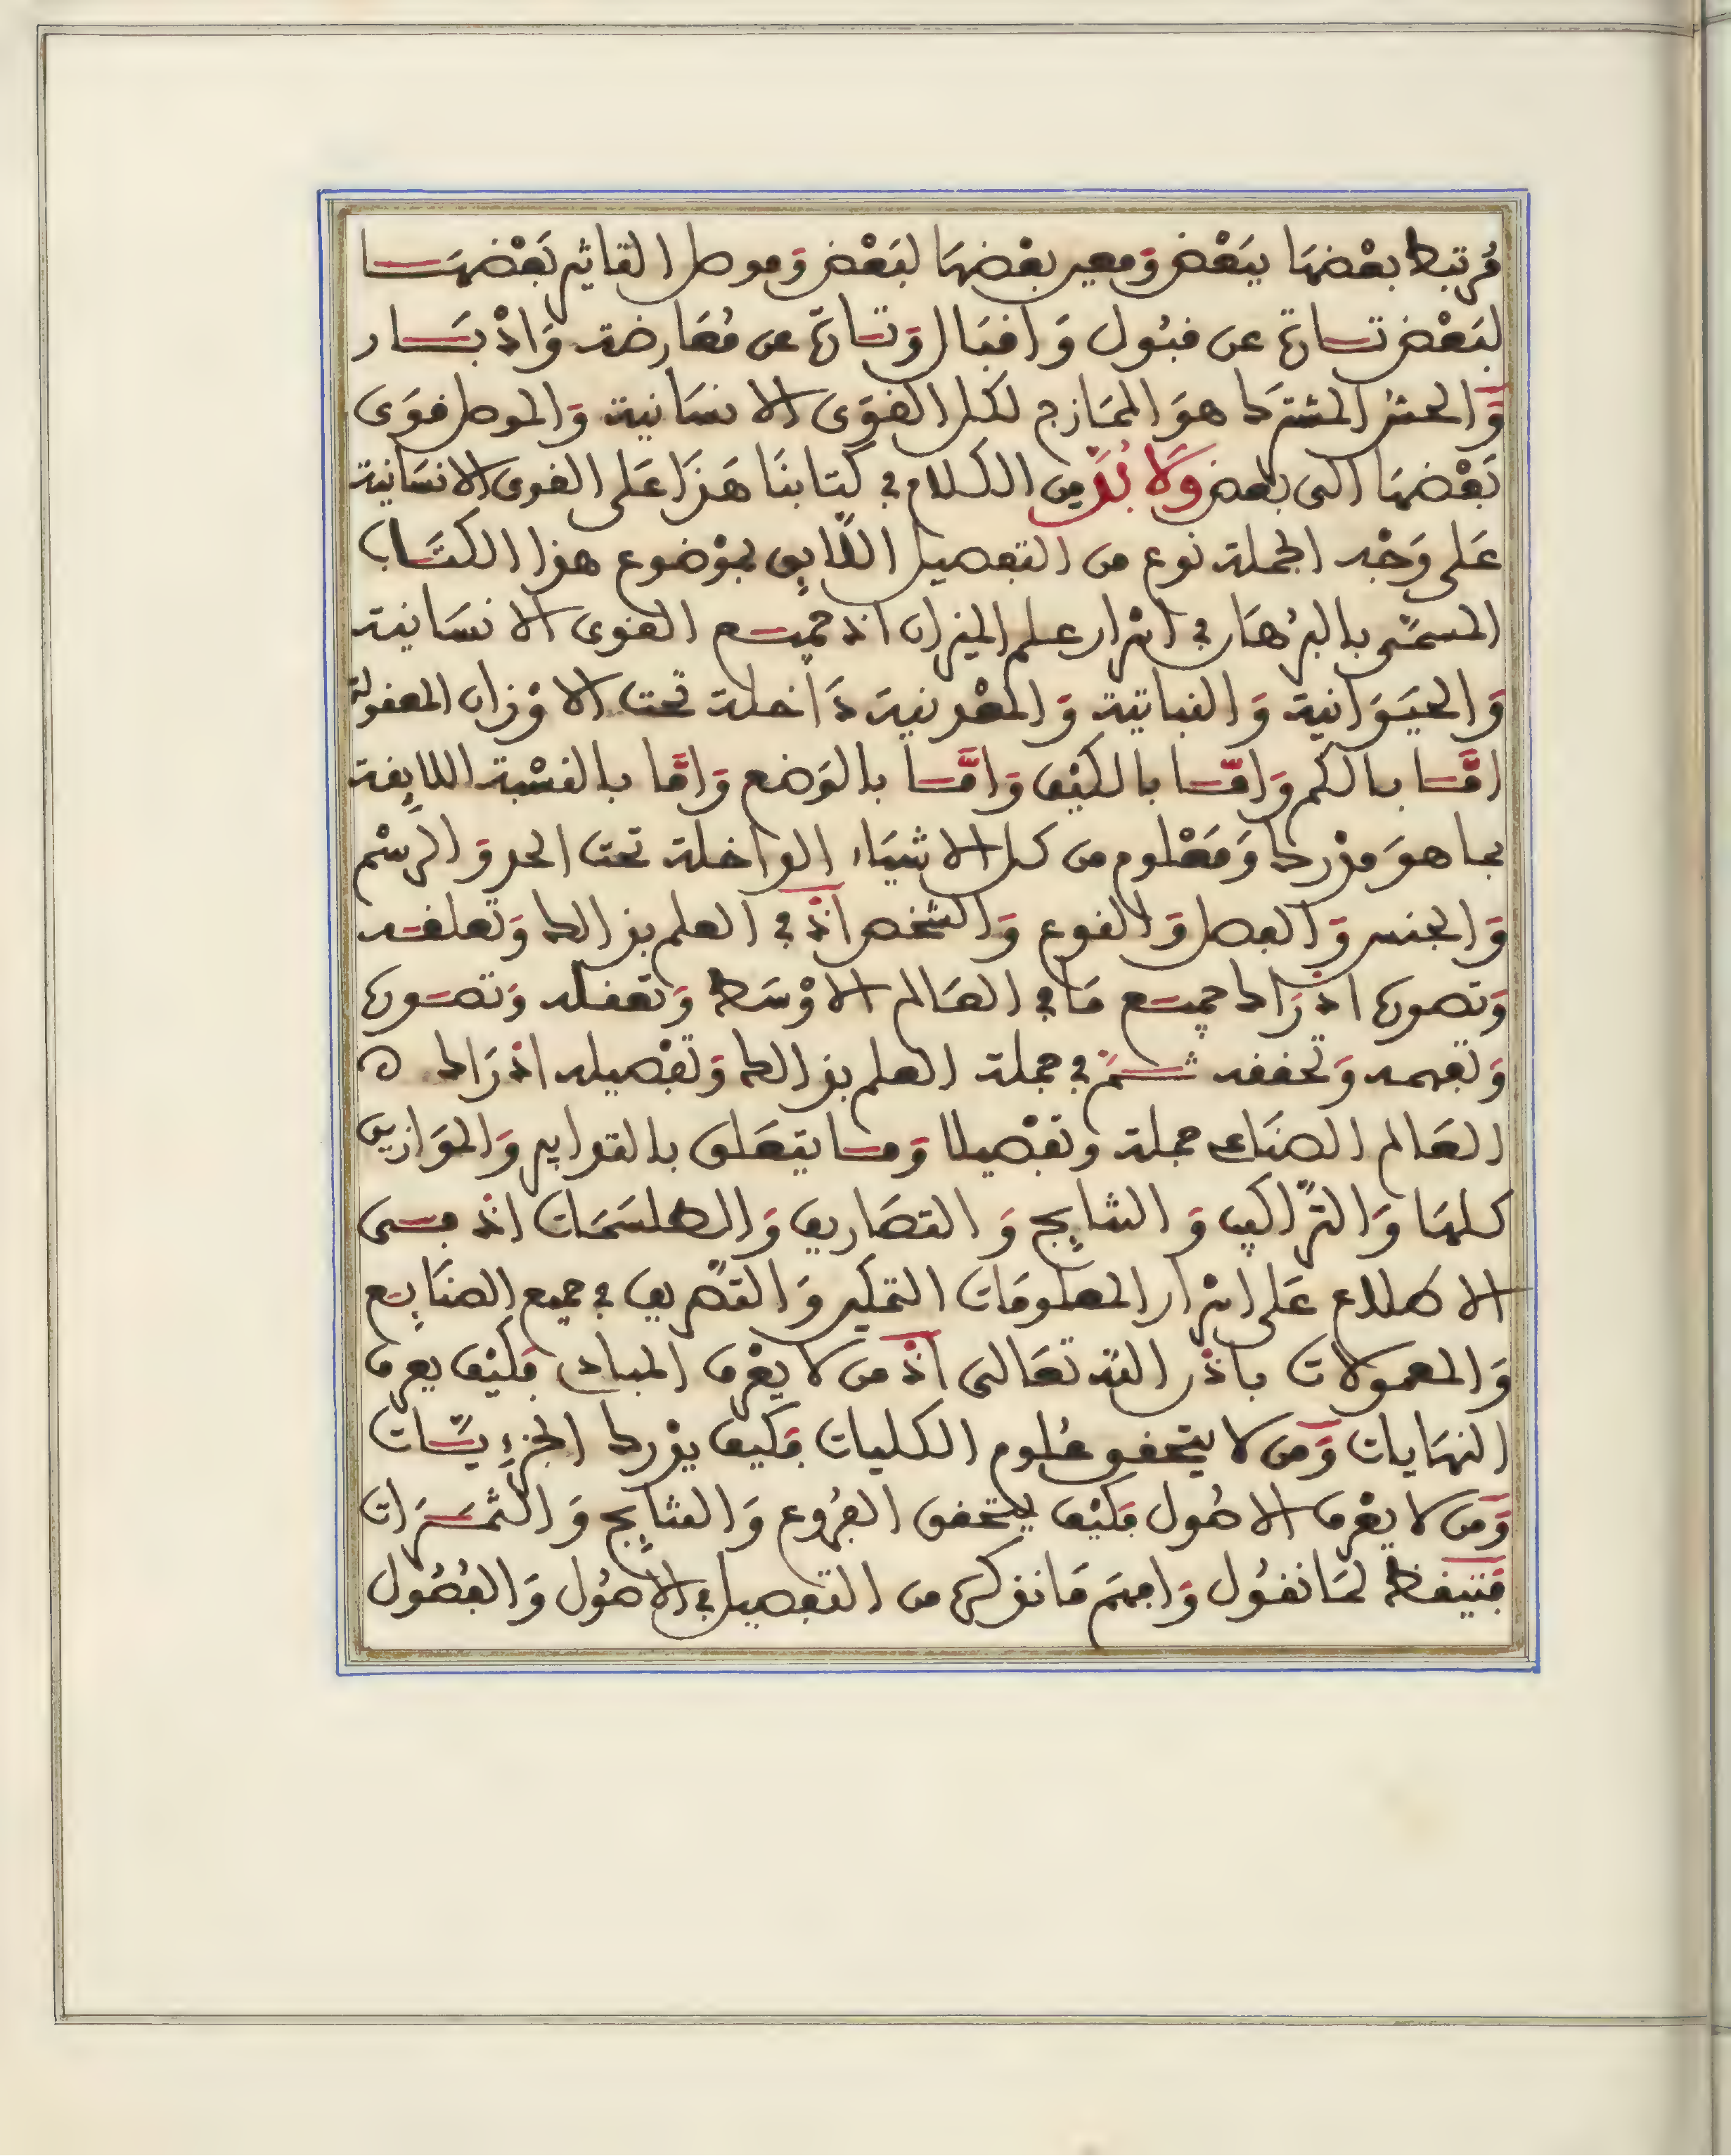 مُرتبط بعْضهَا ببَعْض وَمعين بعْضهَا لبَعْض وَموصل التاثير بَعْضهَا
لبَعْض تارة عن قبُول وَاقبَال وَتارة عن مُعَارضة وَادْبَار
وَالحسّ المشترَك هوَ الممَازج لكل القوَى الانسَانية وَالموصل قوَى
بَعْضهَا الى بعض وَلَا بُدَّ من الكلام في كتابنَا هَذَا عَلى القوى الانسَانية
عَلى وَجْه الجملة نوع من التفصيل اللّايق بموْضوع هذا الكتَاب
المسمّى بالبرُهَان في اسْرار علم الميزان اذ جميع القوى الانسَانية
وَالحيَوَانية وَالنباتية وَالمعْدنية دَاخلة تحت الاوْزان المعقولة
امَّا بالكم وَامَّا بالكيْف وَامَّا بالوَضع وَامَّا بالنسْبة اللايقة
بما هوَ مدْرك وَمَعْلوم من كل الاشيَاء الداخلة تحت الحد وَالرسْم
وَالجنس وَالفصل وَالنوع وَالشخص اذْ في العلم بذالك وَتعلقه
وَتصوره ادْرَاك جميع مَا في العَالم الاوْسَط وَتعقله وَتصَوره
وَتفهمه وَتحققه ثمَّ في جملة العلم بذالك وَتفْصيله ادْرَاك ه
العَالم الصنَاعي جملة وتفْصيلا وَما يتعَلق بالتدابير وَالموَازين
كلهَا وَالترَّاكيب وَالنتايج وَالتصَاريف وَالطلسَمَات اذ فى
الاطلاع عَلى اسْرار المعلومَات التمكين وَالتصْريف في جميع الصنَايع
وَالمعمولات باذْن الله تعَالى اذْ من لا يعْرف المبادى فكيْف يعرف
النهَايات وَمن لا يتحقق عُلوم الكليات فكيف يدْرك الجزءيَّات
وَمن لا يعْرف الاصُول فكيْف يتحقق الفرُوع وَالنتايج وَالثمَرَات
فتيقظ لمَا نقوُل وَافهمَ مَا نذكره من التفصيل في الاصُول وَالفصُول